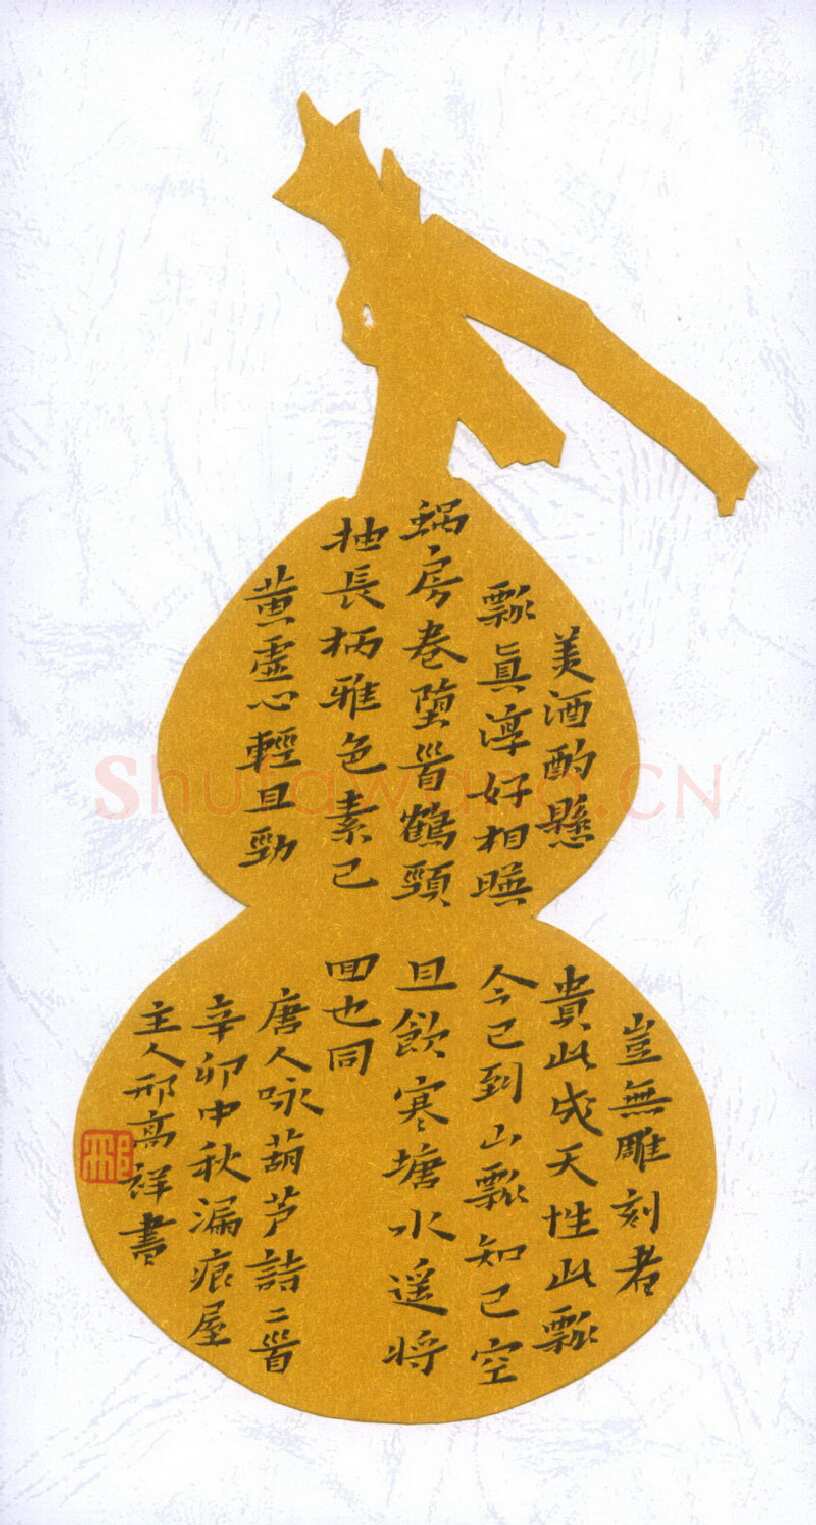 美酒酌懸
瓢眞淳好相暎
蝸房卷墮首鶴頸
抽長柄雅色素已
黄虚心輕且勁
豈無雕刻者
貴此成天性此瓢
今已到山瓢知已空
且飲寒塘水遥将
囬也同
唐人咏葫芦詩二首
辛卯中秋漏痕屋
主人邢高祥書